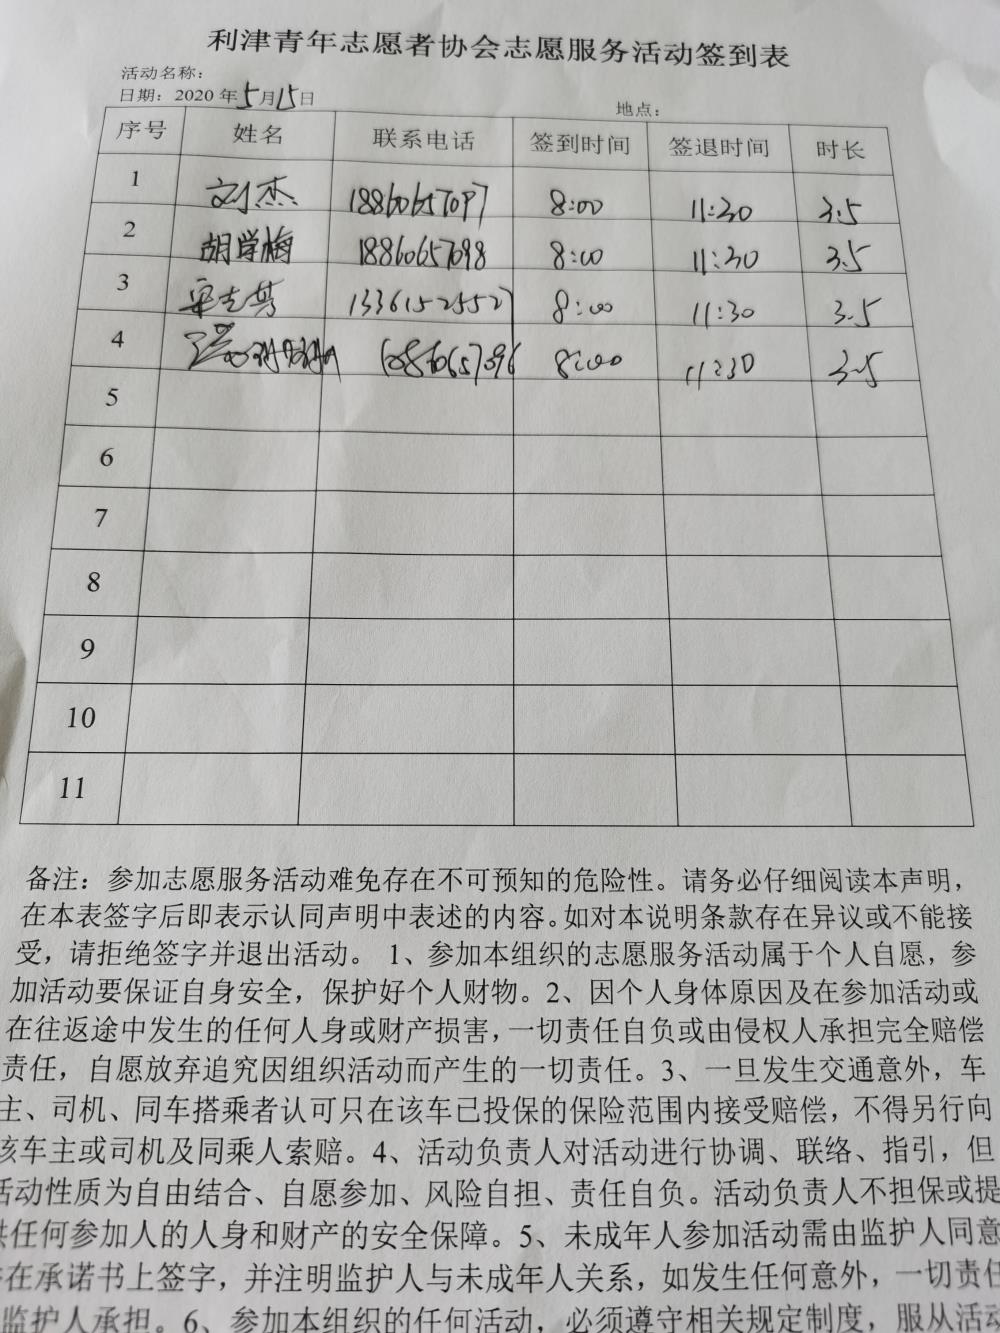 利津青年志愿者协会志愿服务活动签到表
活动名称：
日期：2020年5月15日 地点：
序号 姓名 联系电话 签到时间 签退时间 时长
1 刘杰 18860657097 8:00 11:30 3.5
2 胡学梅 18860657098 8:00 11:30 3.5
3 13361525527 8:00 11:30 3.5
4 8:00 11:30 3.5
5
6
7
8
9
10
11
备注：参加志愿服务活动难免存在不可预知的危险性。请务必仔细阅读本声明，
在本表签字后即表示认同声明中表述的内容。如对本说明条款存在异议或不能接
受，请拒绝签字并退出活动。 1、参加本组织的志愿服务活动属于个人自愿，参
加活动要保证自身安全，保护好个人财物。2、因个人身体原因及在参加活动或
在往返途中发生的任何人身或财产损害，一切责任自负或由侵权人承担完全赔偿
责任，自愿放弃追究因组织活动而产生的一切责任。3、一旦发生交通意外，车
主、司机、同车搭乘者认可只在该车已投保的保险范围内接受赔偿，不得另行向
该车主或司机及同乘人索赔。4、活动负责人对活动进行协调、联络、指引，但
活动性质为自由结合、自愿参加、风险自担、责任自负。活动负责人不担保或提
供任何参加人的人身和财产的安全保障。5、未成年人参加活动需由监护人同意
在承诺书上签字，并注明监护人与未成年人关系，如发生任何意外，一切责任
监护人承担。6、参加本组织的任何活动，必须遵守相关规定制度，服从活动